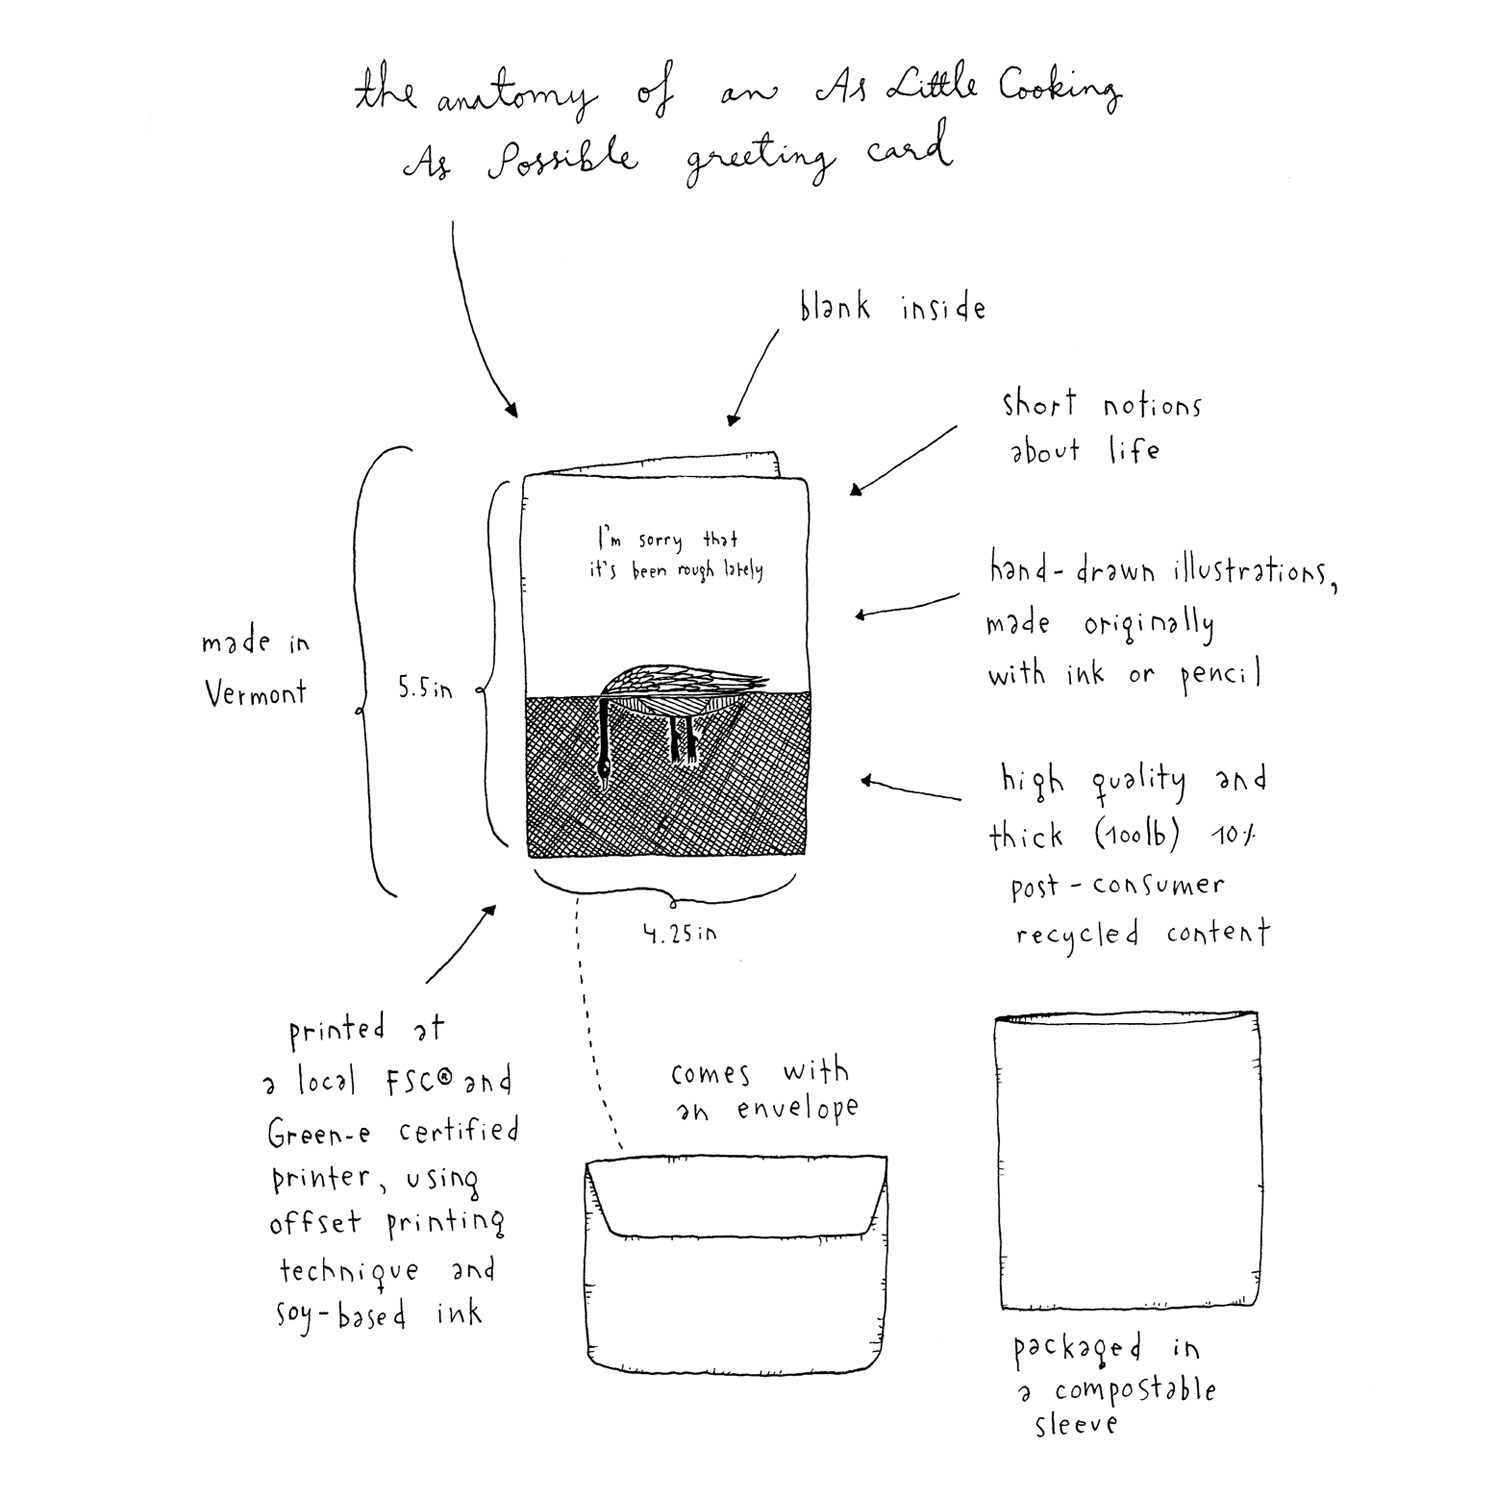 the anatomy of an As Little Cooking
As Possible greeting card
blank inside
short notions
about life
I'm sorry that
it's been rough lately
hand-drawn illustrations,
made originally
with ink or pencil
made in
Vermont
5.5in
high quality and
thick (100lb) 10%
post-consumer
recycled content
4.25in
printed at
a local FSC® and
Green-e certified
printer, using
offset printing
technique and
soy-based ink
comes with
an envelope
packaged in
a compostable
sleeve